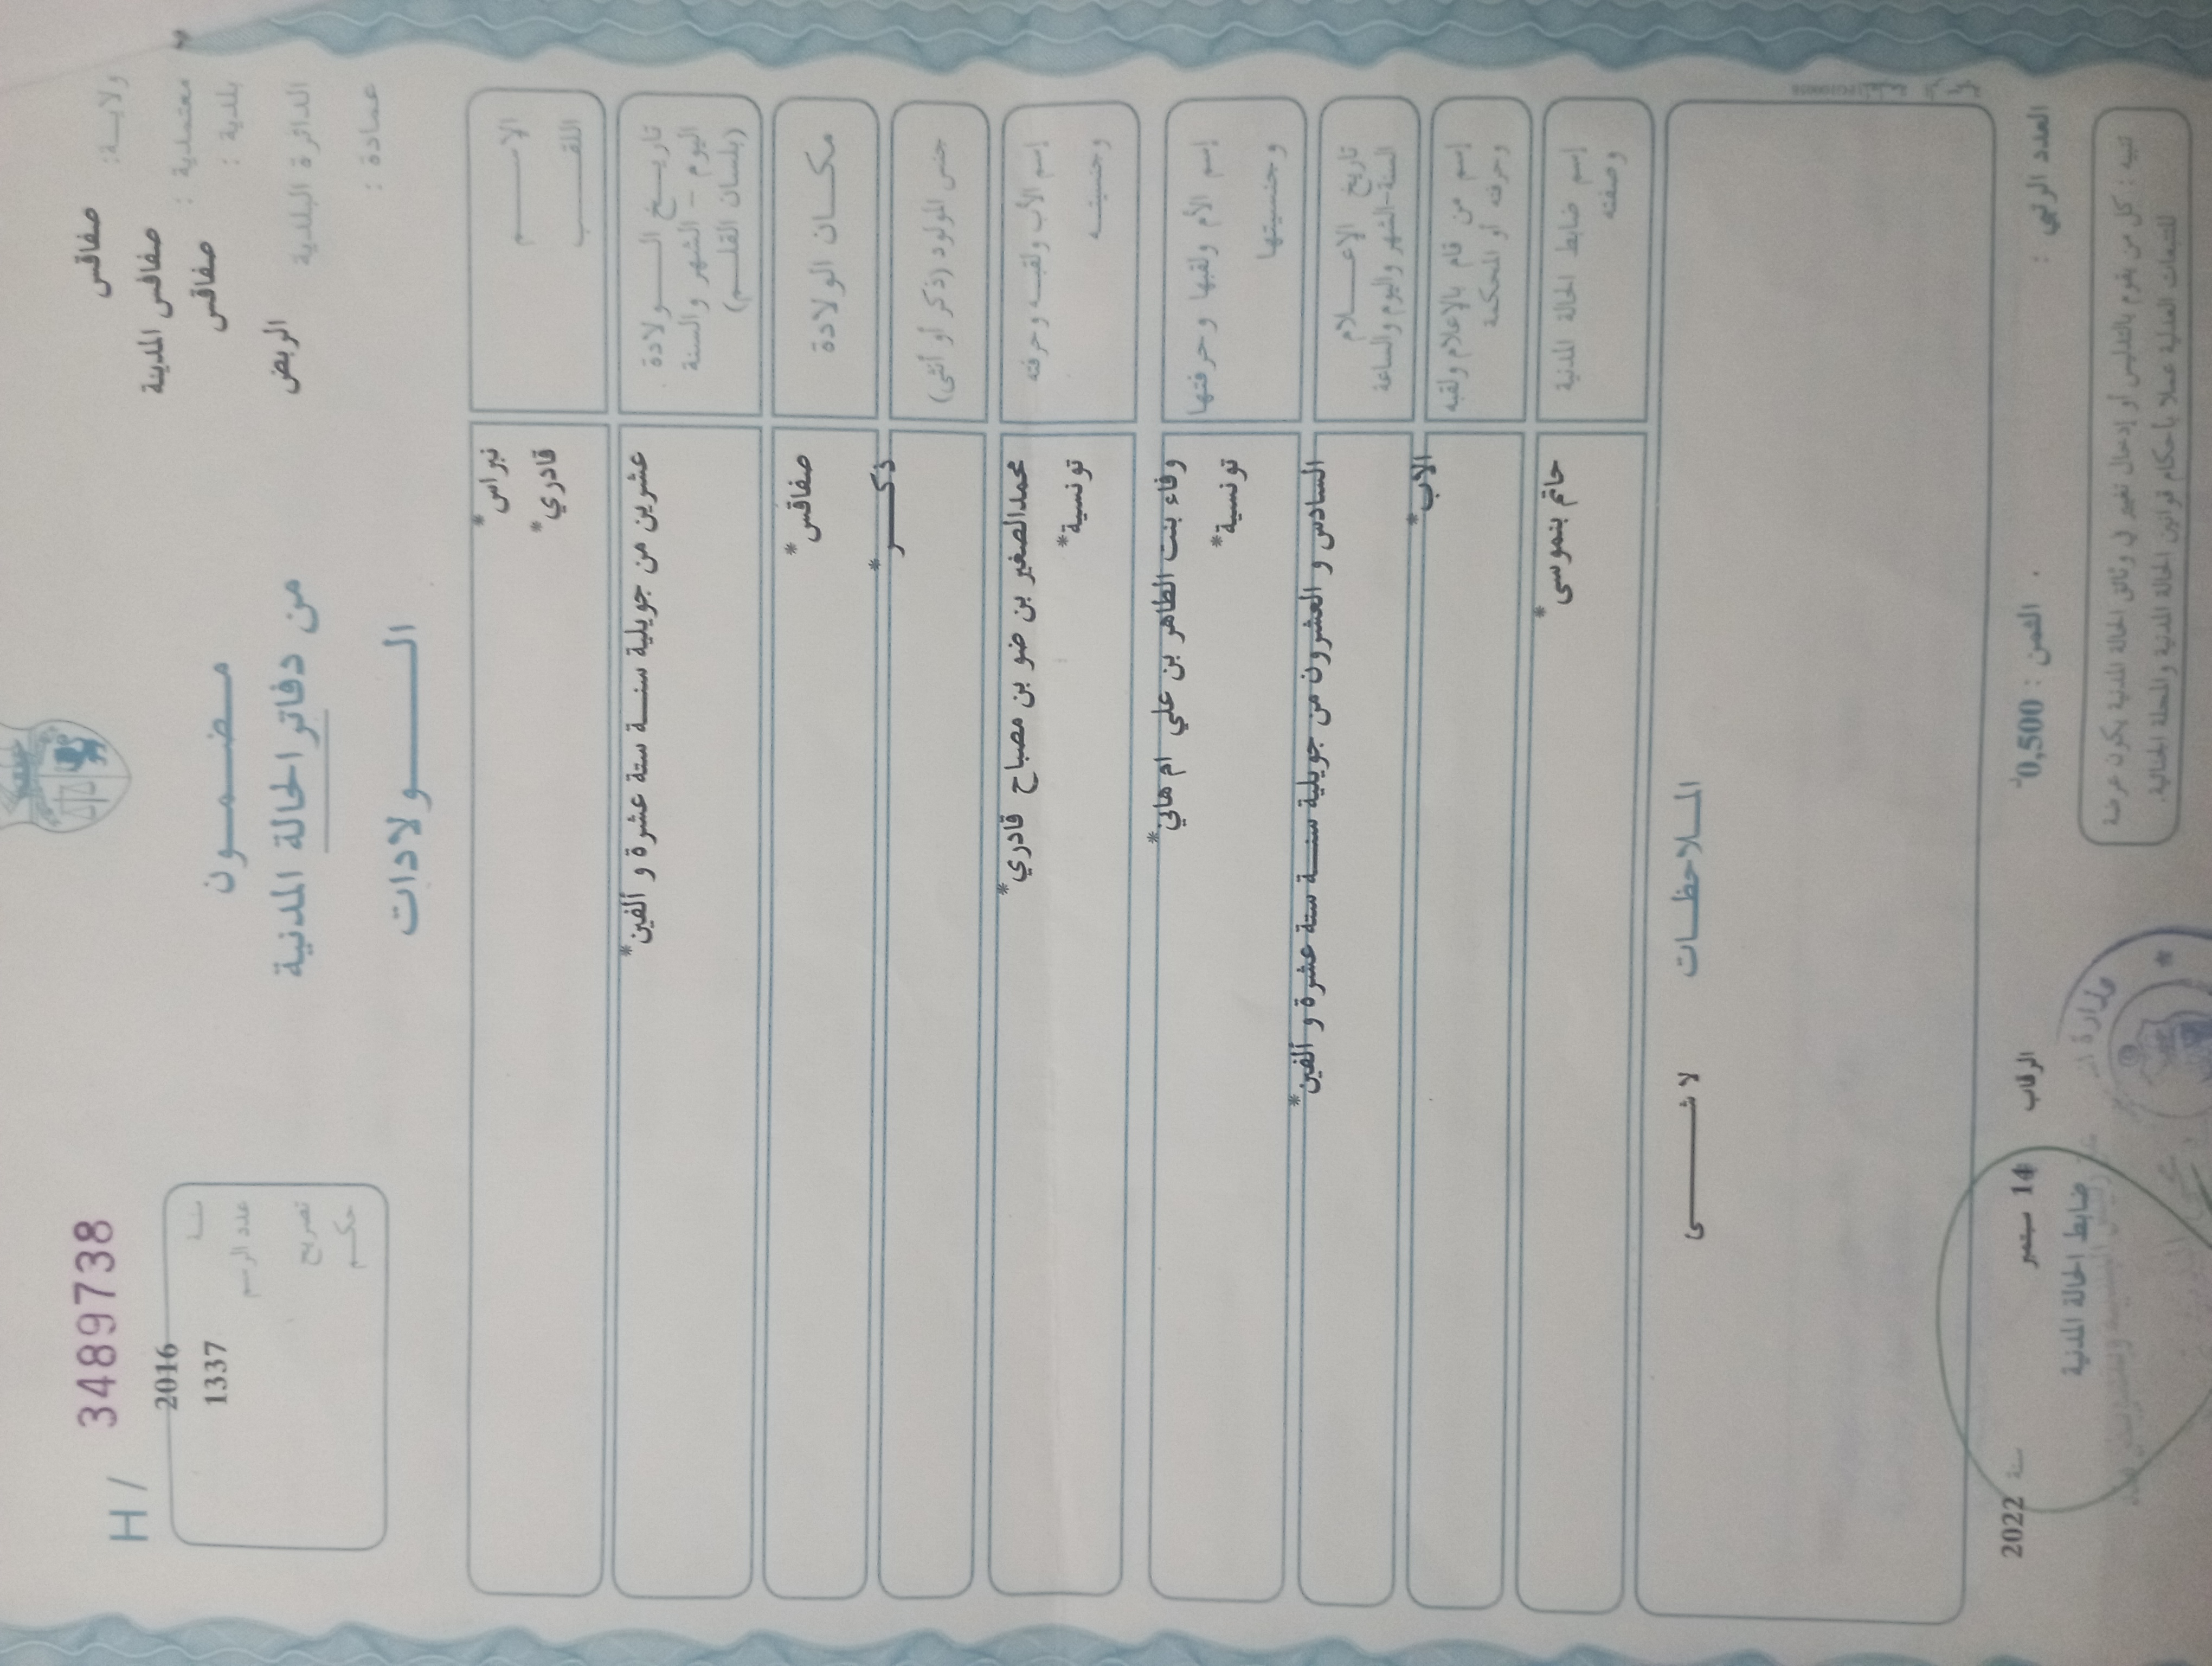 H / 3489738
ولايـــة: صفاقس
معتمدية : صفاقس المدينة
بلدية : صفاقس
الدائرة البلدية الربض
عمادة :
2016
عدد الرسم 1337
تصريح
حكـــم
مـــضـــمـــون
من دفاتر الحالة المدنية
الـــــولادات
الإســــــم نبراس*
اللقــــــب قادري*
تاريـــخ الــــولادة عشرين من جويلية سنـــة ستة عشرة و ألفين*
اليوم – الشهر والسنة
(بلسان القلـــم)
مكـــان الولادة صفاقس*
جنس المولود (ذكر أو أنثى) ذكــــر*
إسم الأب ولقبـــه وحرفته محمدالصغير بن ضو بن مصباح قادري*
وجنسيتـــه تونسية*
إسم الأم ولقبها وحرفتها وفاء بنت الطاهر بن علي ام هاني*
وجنسيتها تونسية*
تاريخ الإعــــلام السادس و العشرون من جويلية سنـــة ستة عشرة و ألفين*
السنة-الشهر واليوم والساعة
إسم من قام بالإعلام ولقبه الاب*
وحرفته أو المحكمة
إسم ضابط الحالة المدنية حاتم بنموسى*
وصفته
المـــلاحظـــات
لا شـــــــى
العدد الرتبي :
الثمن : 0,500د
الرقاب 14 سبتمبر سنة 2022
ضابط الحالة المدنية
تنبيه : كل من يقوم بالتدليس أو إدخال تغيير في وثائق الحالة المدنية يكون عرضة
للتتبعات العدلية عملا بأحكام قوانين الحالة المدنية والمجلة الجنائية.